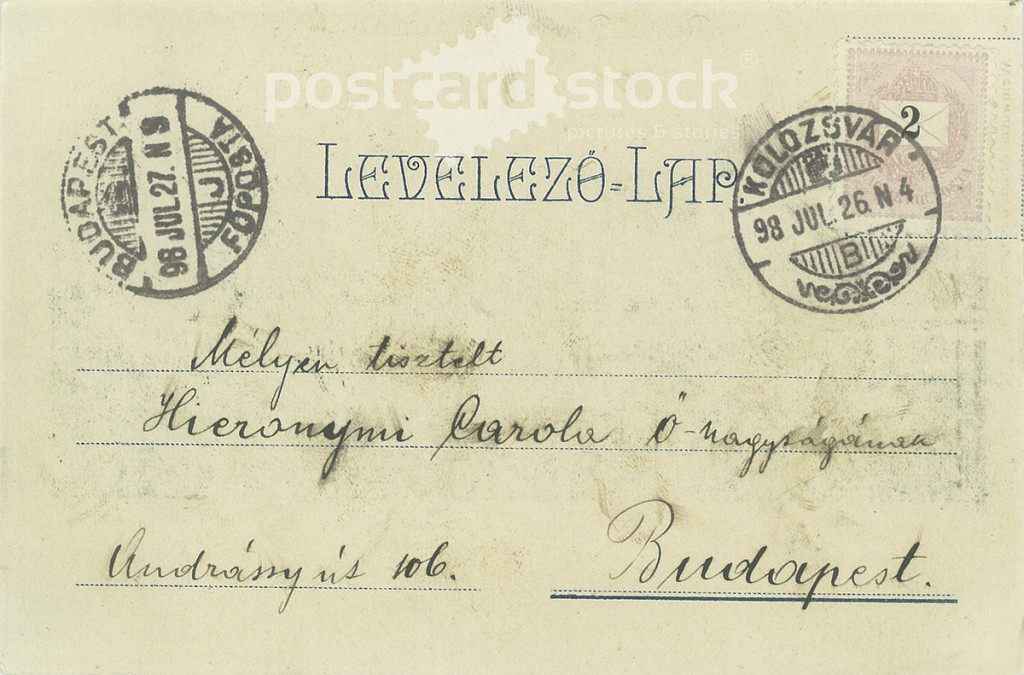 postcard stock®
pictures & stories
LEVELEZŐ-LAP
2
BUDAPEST
98 JUL. 27. N 9
J
FŐPOSTA
KOLOZSVÁR
98 JUL. 26. N 4
B
Mélyen tisztelt
Hieronymi Carola Ő-nagyságának
Andrássy út 106.
Budapest.